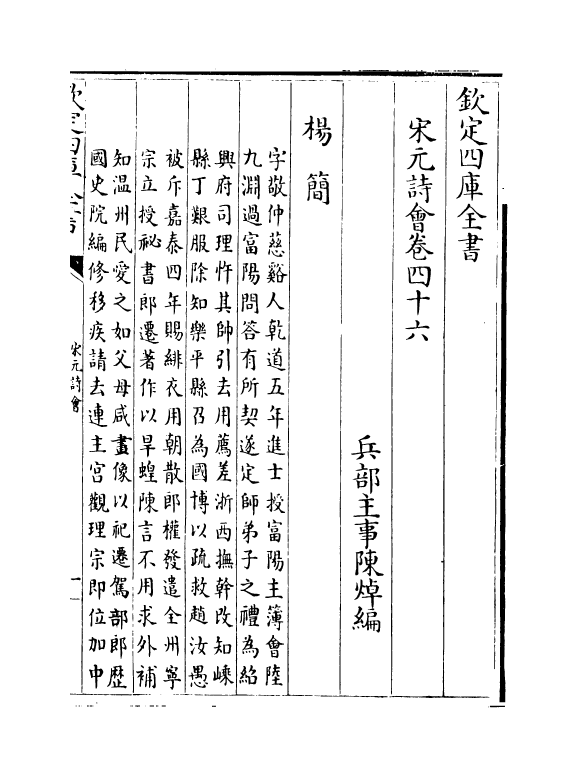 欽定四庫全書
宋元詩會卷四十六
兵部主事陳焯編
楊簡
字敬仲慈谿人乾道五年進士授富陽主簿會陸
九淵過富陽問答有所契遂定師弟子之禮為紹
興府司理忤其帥引去用薦差浙西撫幹改知嵊
縣丁艱服除知樂平縣召為國博以疏救趙汝愚
被斥嘉泰四年賜緋衣用朝散郎權發遣全州寧
宗立授祕書郎遷著作以旱蝗陳言不用求外補
知温州民愛之如父母咸畫像以祀遷駕部郎歴
國史院編修移疾請去連主宫觀理宗即位加中
欽定四庫全書
宋元詩會
一